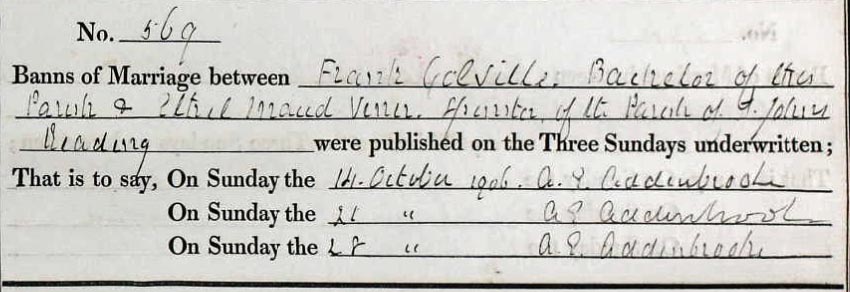 No. 569
Banns of Marriage between Frank Colville, Bachelor of this
Parish & Ethel Maud Venner, Spinster, of the Parish of St Johns
Reading were published on the Three Sundays underwritten;
That is to say, On Sunday the 14 October 1906. A. E. Addenbrooke
On Sunday the 21 " A E Addenbrooke
On Sunday the 28 " A. E. Addenbrooke